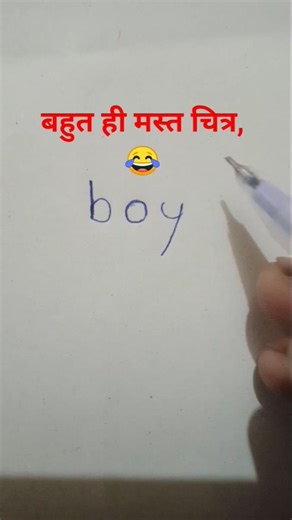 बहुत ही मस्त चित्र,
😂
boy